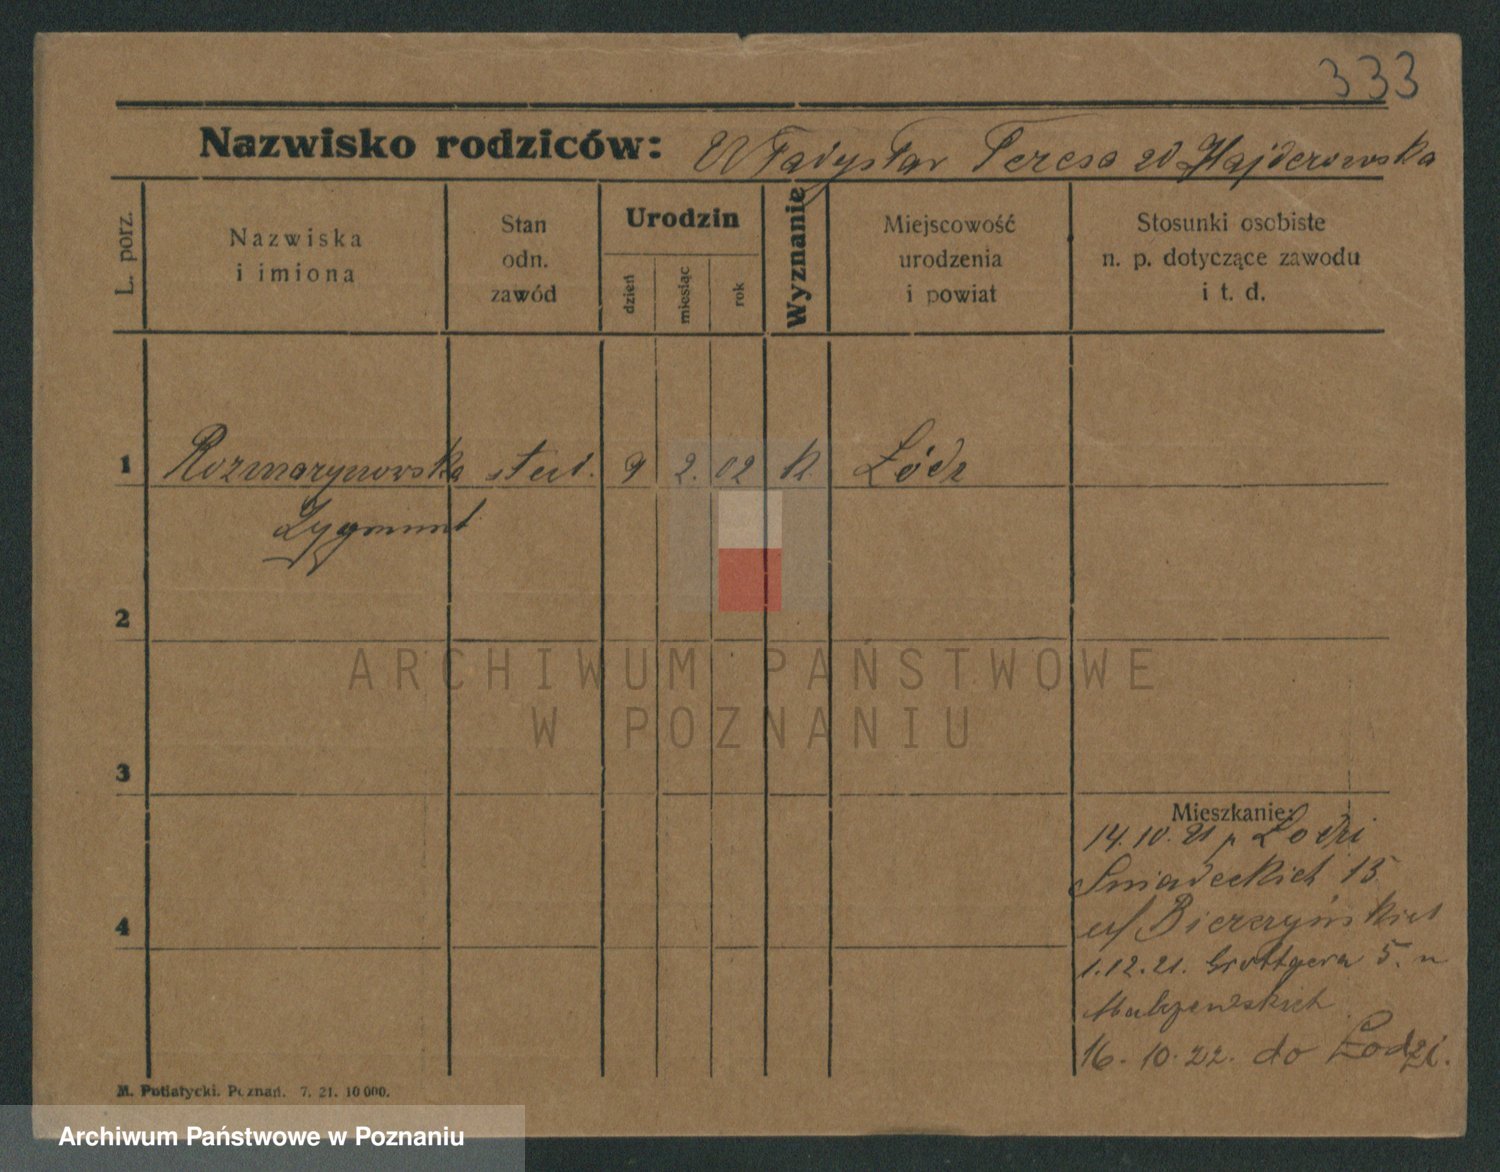 333
Nazwisko rodziców: Władysław Teresa zd Hajderowska
L. porz.
Nazwiska
i imiona
Stan
odn.
zawód
Urodzin
dzień
miesiąc
rok
Wyznanie
Miejscowość
urodzenia
i powiat
Stosunki osobiste
n. p. dotyczące zawodu
i t. d.
1 Rozmarynowska stud. 9 2. 02 k Łódz
Zygmunt
2
ARCHIWUM PAŃSTWOWE
W POZNANIU
3
Mieszkanie:
14.10.21 z Łodzi
Śniadeckich 15
u/ Bierzyńskich
4
1.12.21. Grottgera 5. u
16. 10. 22. do Łodzi.
M. Putiatycki. Poznań. 7. 21. 10 000.
Archiwum Państwowe w Poznaniu